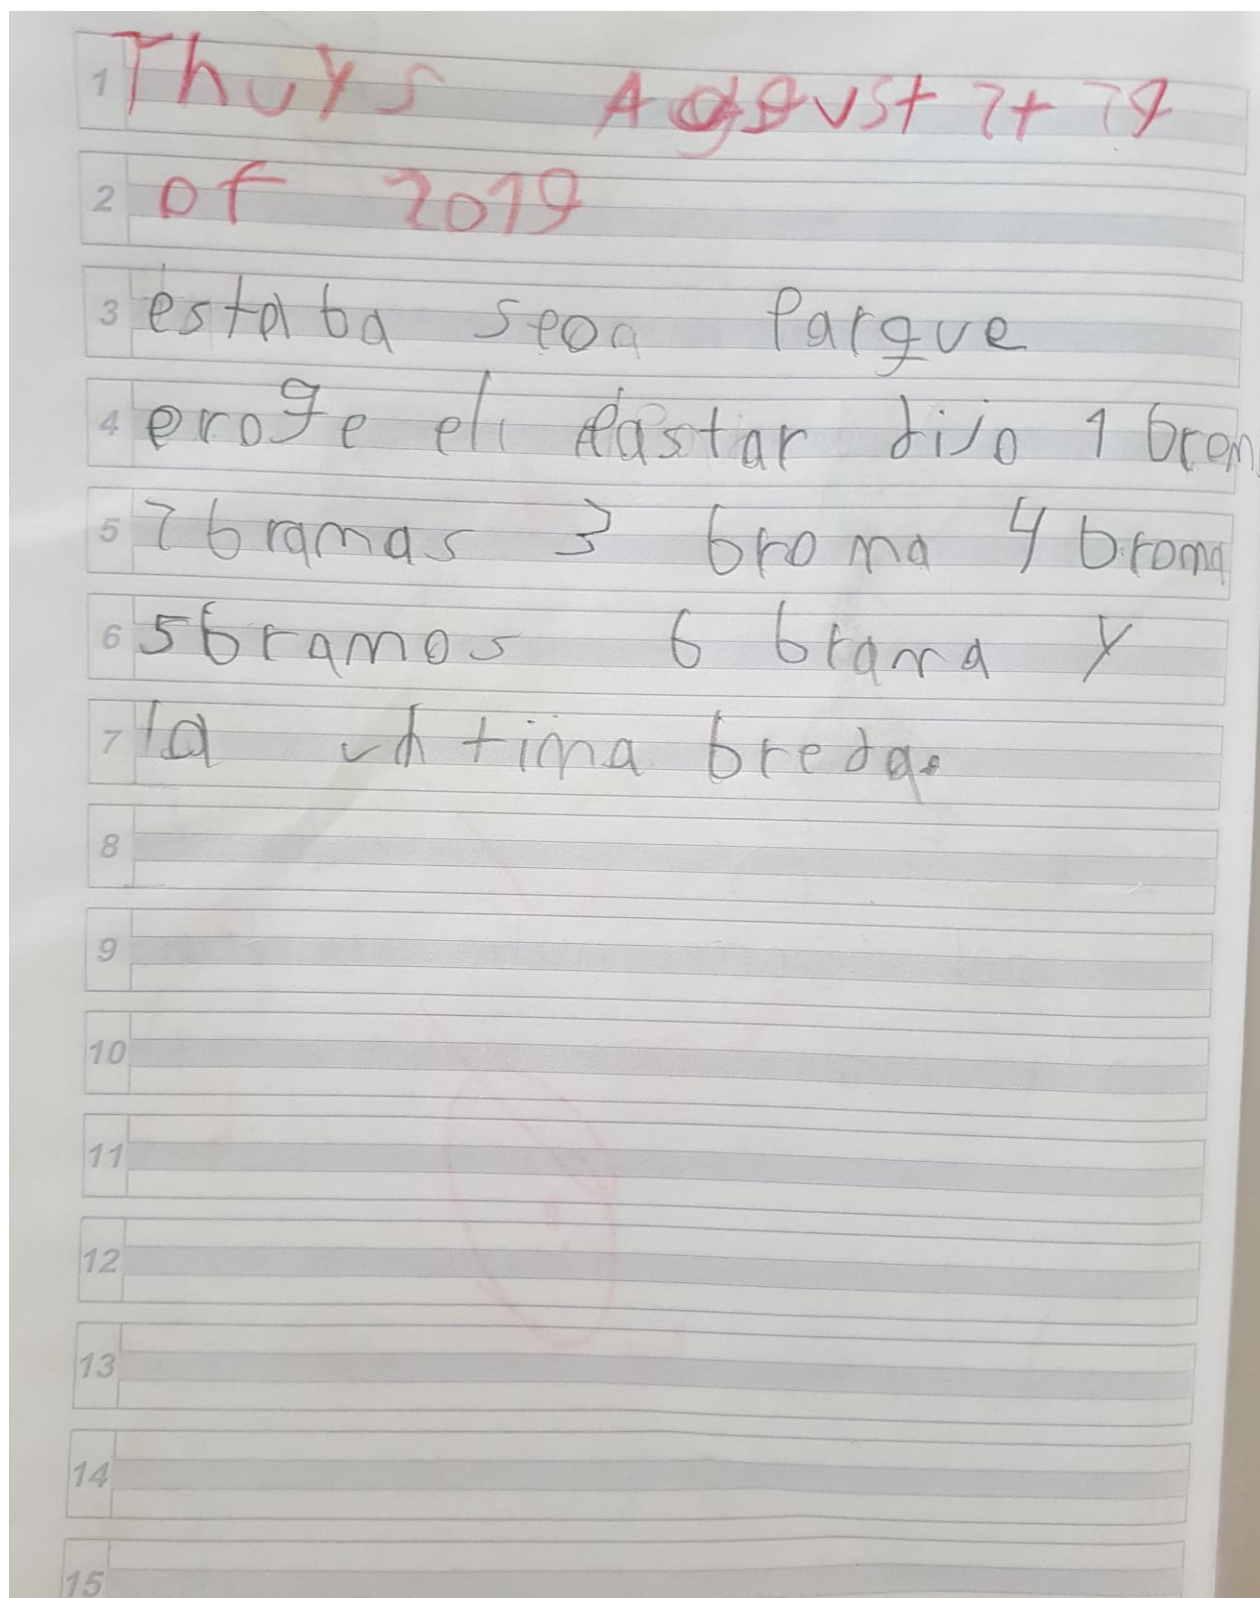 1 Thurs August
2 of 2019
3 estaba seoa Parque
4 eroge el pastar dijo 1 brom
5 7 bramas 3 broma 4 broma
6 5 bramos 6 brama y
7 la tima breda.
8
9
10
11
12
13
14
15